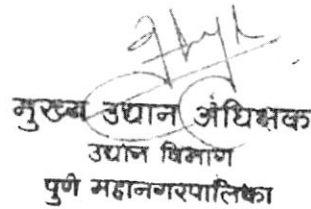 मुख्य उद्यान अधिक्षक
उद्यान विभाग
पुणे महानगरपालिका